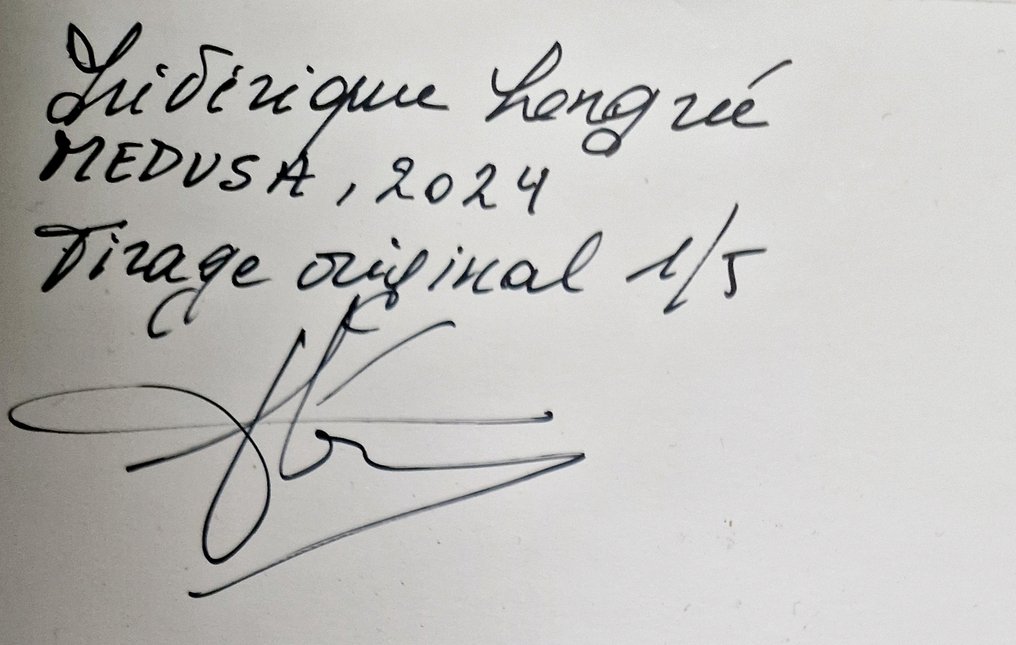 Frédérique Longrée
MEDUSA, 2024
Tirage original 1/5